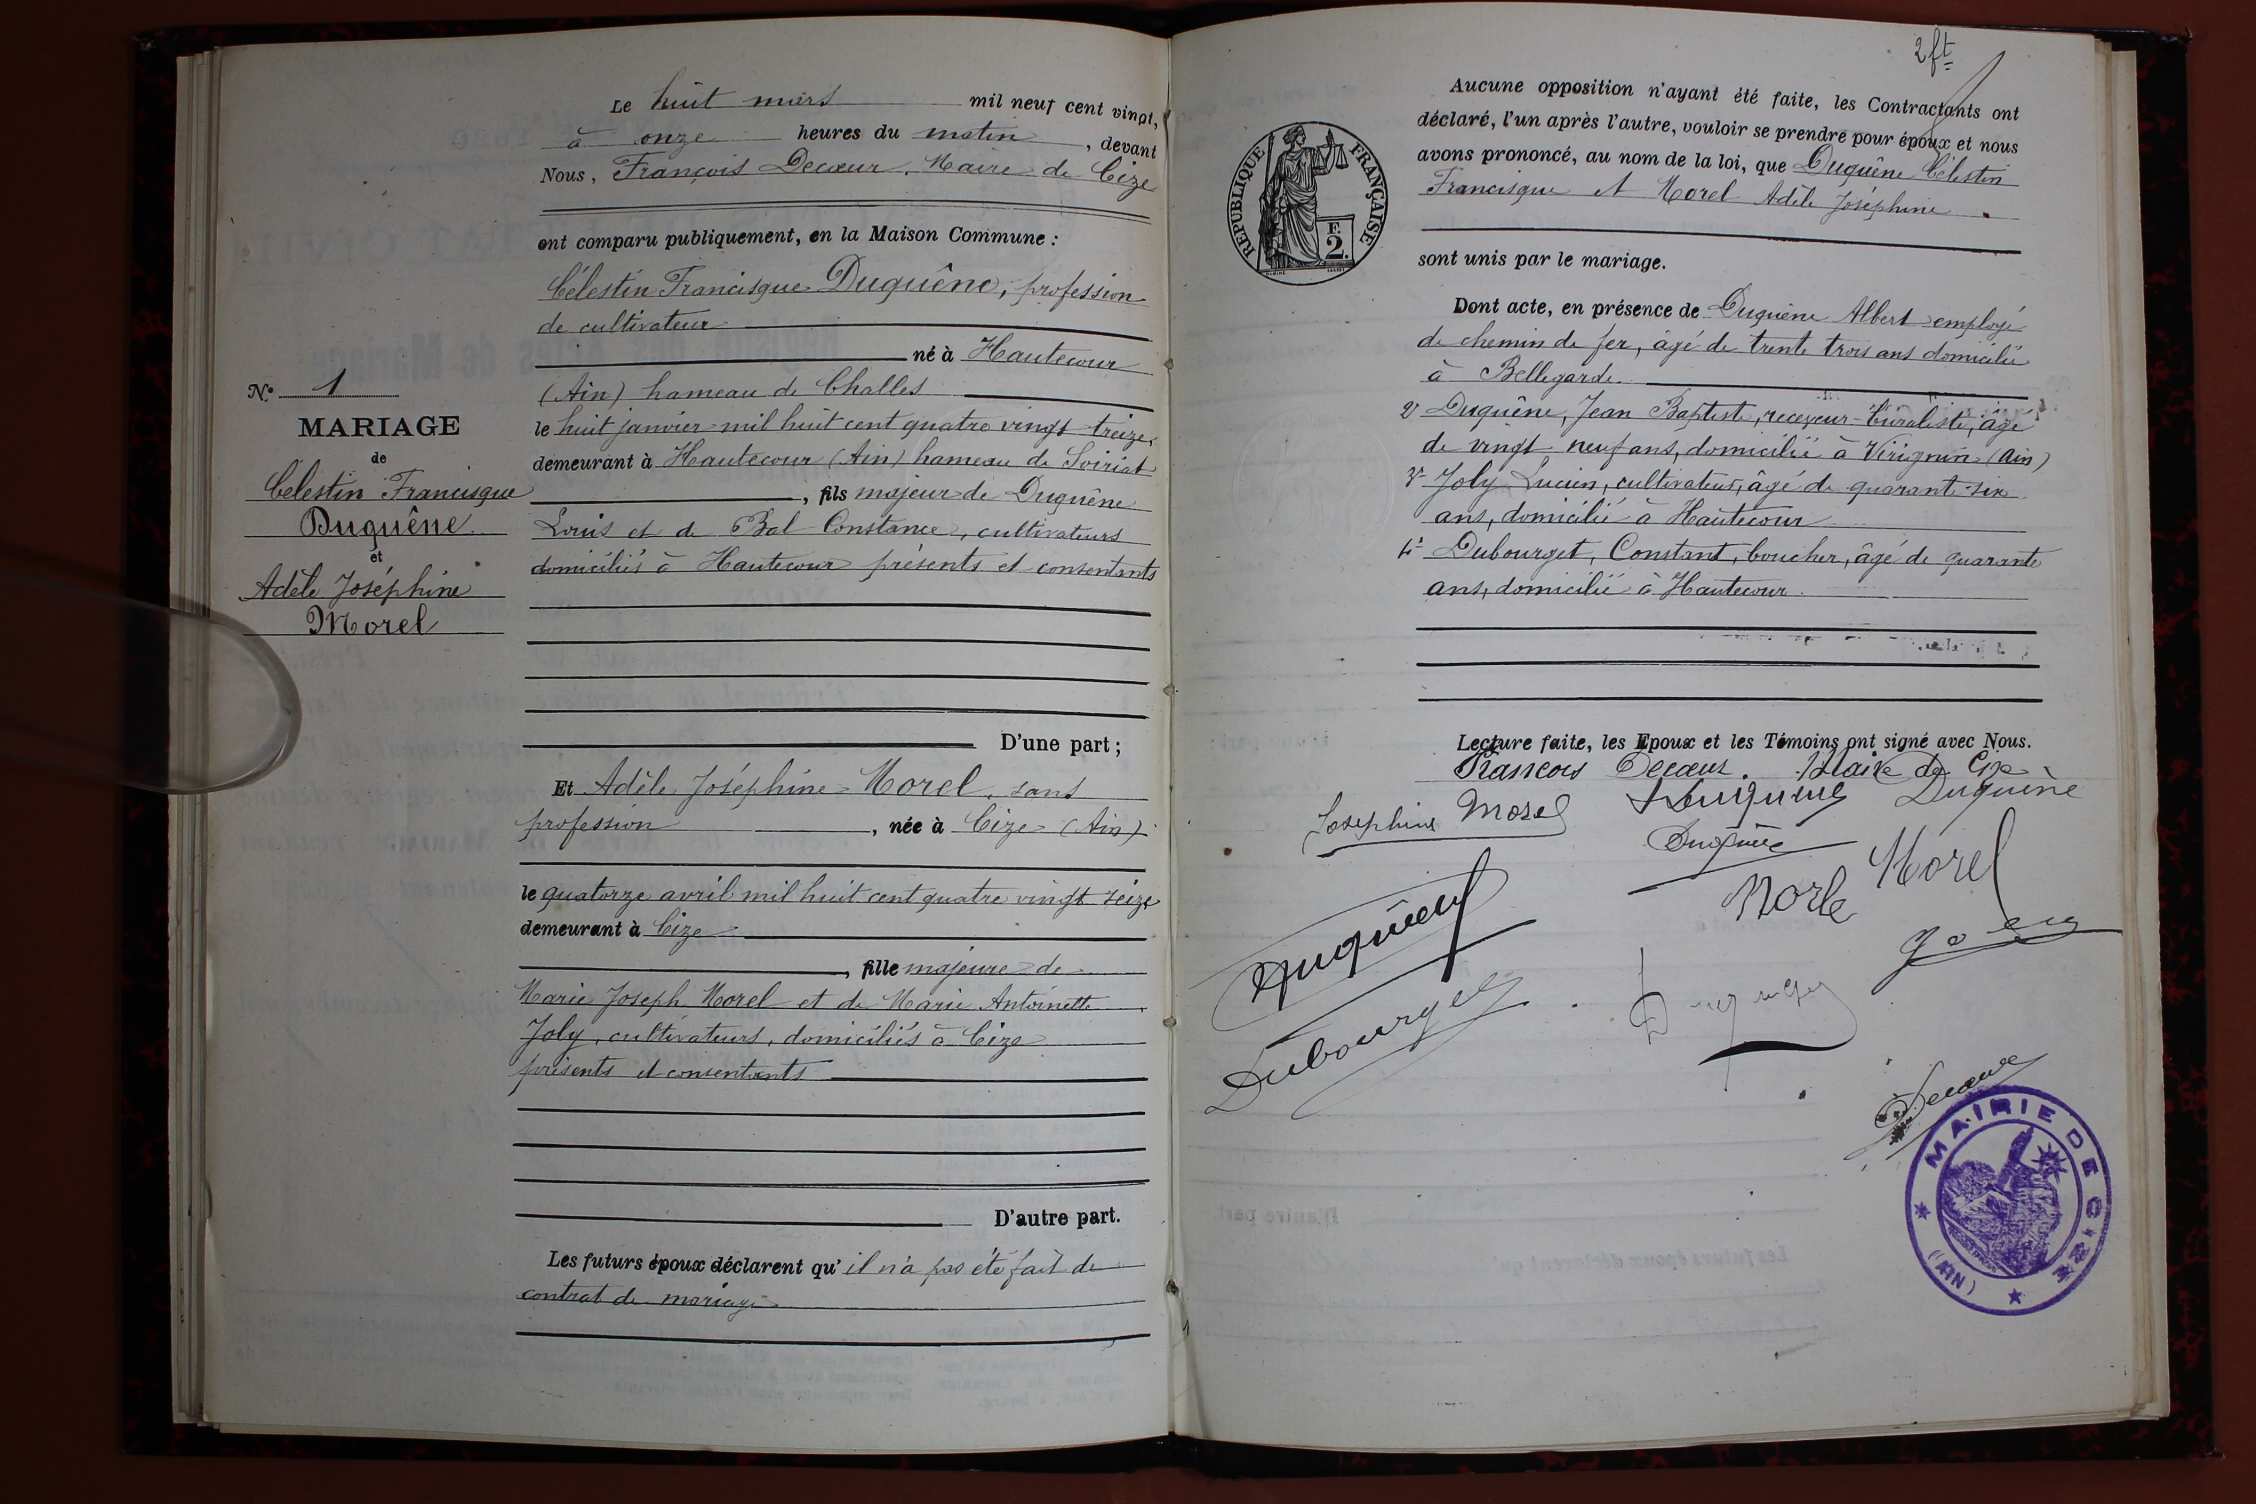 N° 1
MARIAGE
de
Célestin Francisque
Duquêne
et
Adèle Joséphine
Morel
Le huit mars mil neuf cent vingt,
à onze heures du matin, devant
Nous, François Decœur, Maire de Cize
ont comparu publiquement, en la Maison Commune :
Célestin Francisque Duquêne, profession
de cultivateur
né à Hautecour
(Ain) hameau de Challes
le huit janvier mil huit cent quatre vingt treize,
demeurant à Hautecour (Ain) hameau de Soiriat
, fils majeur de Duquêne
Louis et de Bal Constance, cultivateurs
domiciliés à Hautecour présents et consentants
D'une part ;
Et Adèle Joséphine Morel, sans
profession, née à Cize (Ain)
le quatorze avril mil huit cent quatre vingt seize
demeurant à Cize
, fille majeure de
Marie Joseph Morel et de Marie Antoinette
Joly, cultivateurs, domiciliés à Cize
présents et consentants
D'autre part.
Les futurs époux déclarent qu' il n'a pas été fait de
contrat de mariage
2 ft
RÉPUBLIQUE FRANÇAISE
F.
2.
Aucune opposition n'ayant été faite, les Contractants ont
déclaré, l'un après l'autre, vouloir se prendre pour époux et nous
avons prononcé, au nom de la loi, que Duquêne Célestin
Francisque et Morel Adèle Joséphine.
sont unis par le mariage.
Dont acte, en présence de Duquêne Albert employé
de chemin de fer, âgé de trente trois ans domicilié
à Bellegarde.
2° Duquêne, Jean Baptiste, receveur-buraliste, âgé
de vingt neuf ans, domicilié à Virignin (Ain)
3° Joly Lucien, cultivateur, âgé de quarante-six
ans, domicilié à Hautecour
4° Dubourget, Constant, boucher, âgé de quarante
ans, domicilié à Hautecour.
Lecture faite, les Epoux et les Témoins ont signé avec Nous.
François Decœur. Maire de Cize
Josephine Morel Duquêne
Duquêne
Morel
Duquêne
Joly
Dubourget
Decœur
MAIRIE DE CIZE
(AIN)